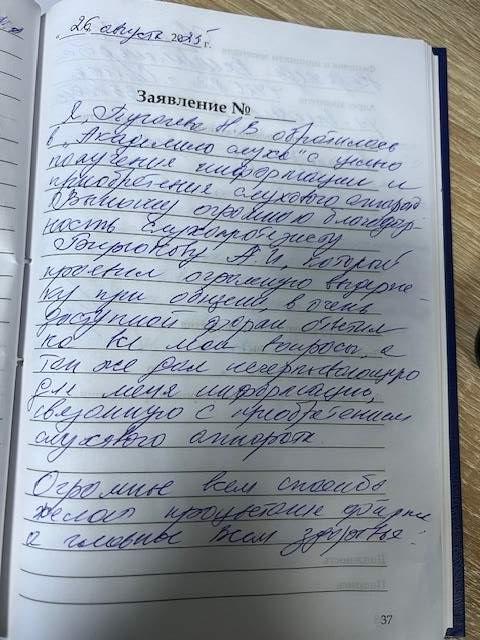 "26" августа 2025 г.
Заявление №
Я, Пугачева Н.В. обратилась
в "Академию слуха" с целью
получения информации и
приобретения слухового аппарата
Выношу огромную благодар-
ность слухопротезисту
Бирюкову А.И, который
проявил огромную выдерж-
ку при общении, в очень
доступной форме ответил
на все мои вопросы, а
так же дал исчерпывающую
для меня информацию,
связанную с приобретением
слухового аппарата.
Огромное всем спасибо
желаю процветание фирме
а главное всем здоровья!
37